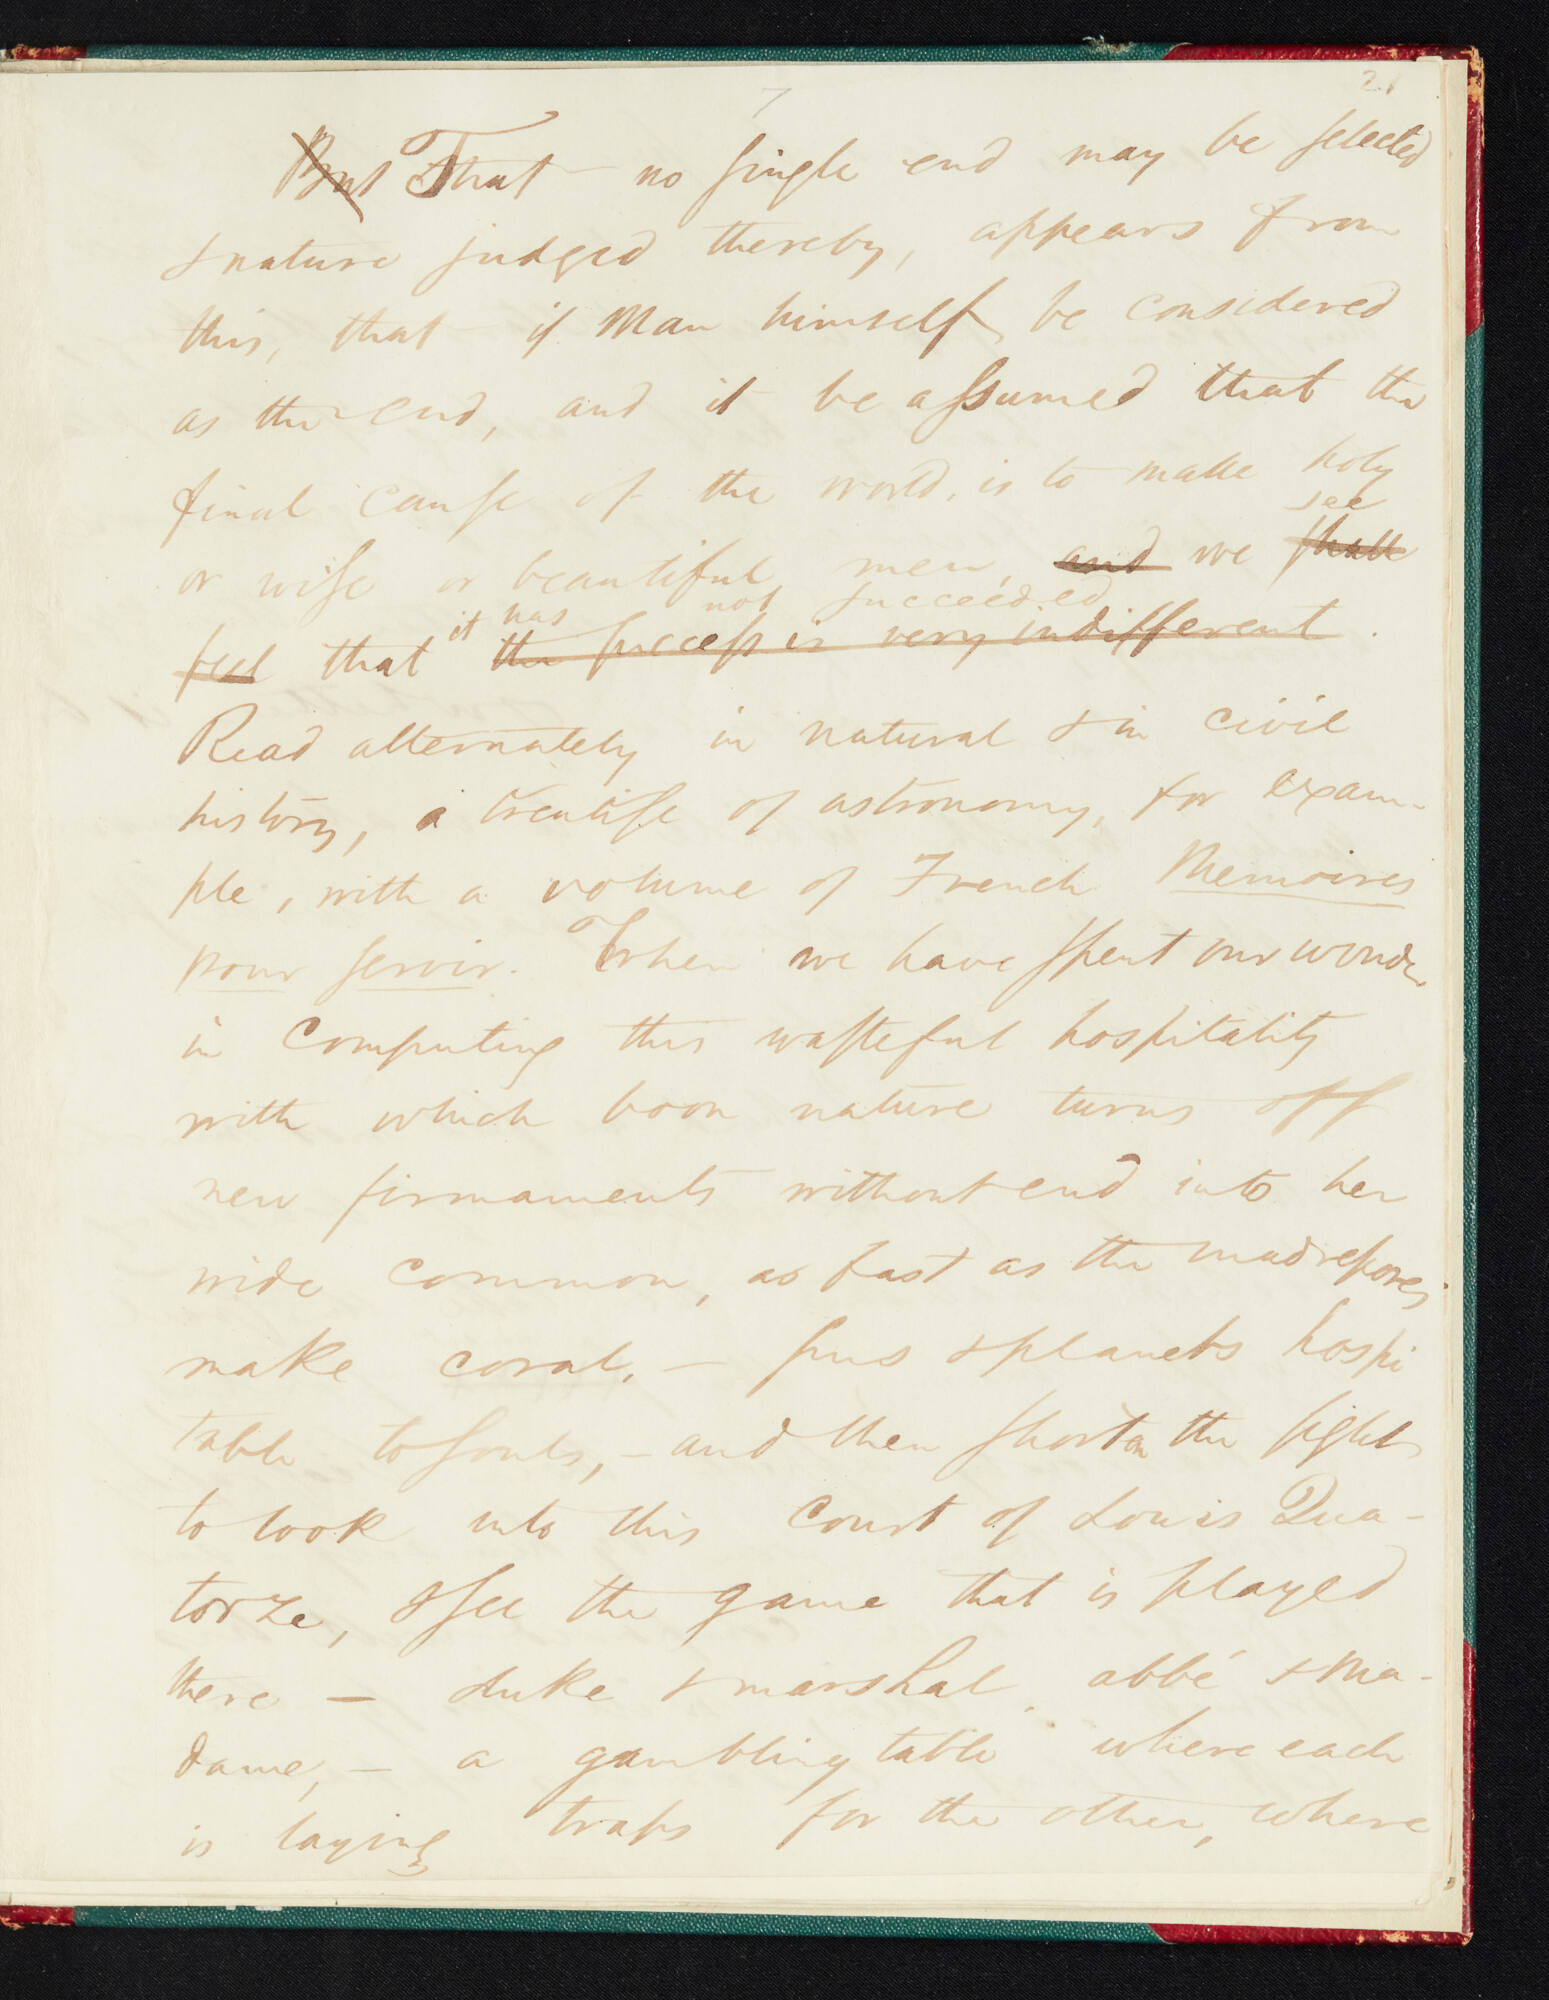 7
21
But That no single end may be selected
& nature judged thereby, appears from
this, that if Man himself be considered
as the end, and it be assumed that the
final cause of the world, is to make holy
or wise or beautiful men, and we shall see
feel that it has not succeeded the success is very indifferent.
Read alternately in natural & in civil
history, a treatise of astronomy, for exam-
ple, with a volume of French Memoires
pour servir. When we have spent our wonder
in computing this wasteful hospitality
with which boon nature turns off
new firmaments without end into her
wide common, as fast as the madrepores
make coral, – suns & planets hospi
table to souls, – and then shorten the sight
to look into this court of Louis Qua-
torze, & see the game that is played
there – duke & marshal, abbé & ma-
dame, – a gambling table where each
is laying traps for the other, where